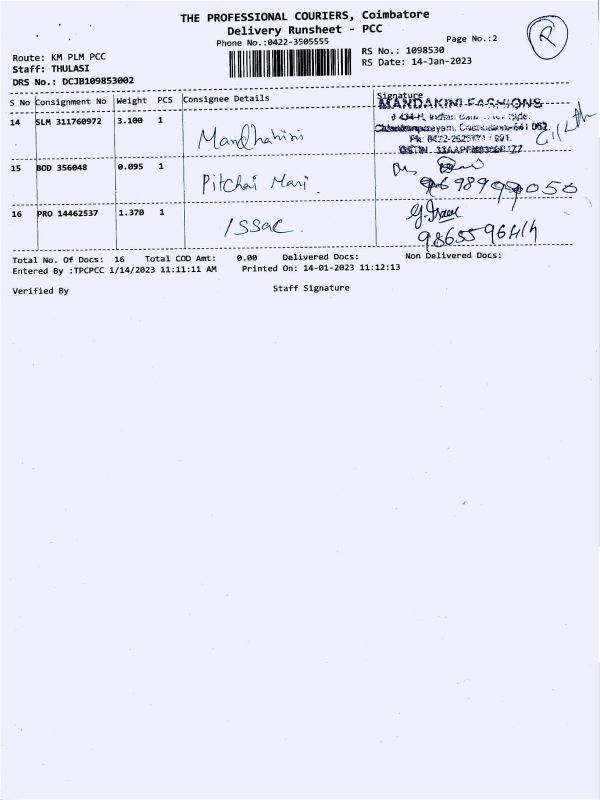 THE PROFESSIONAL COURIERS, Coimbatore
Delivery Runsheet - PCC
Phone No.:0422-3505555
Page No.:2
R
Route: KM PLM PCC
RS No.: 1098530
Staff: THULASI
RS Date: 14-Jan-2023
DRS No.: DCJB109853002
S No Consignment No Weight PCS Consignee Details Signature
MANDAKINI FASHIONS
14 SLM 311760972 3.100 1
15 BOD 356048 0.095 1 Pitchai Mari
16 PRO 14462537 1.370 1 Issac.
9865596414
Total No. Of Docs: 16 Total COD Amt: 0.00 Delivered Docs: Non Delivered Docs:
Entered By :TPCPCC 1/14/2023 11:11:11 AM Printed On: 14-01-2023 11:12:13
Verified By Staff Signature